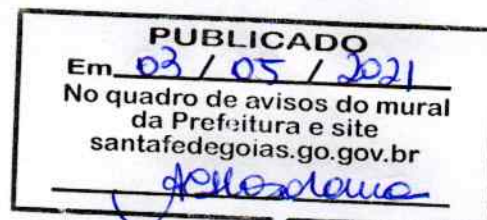 PUBLICADO
Em 03 / 05 / 2021
No quadro de avisos do mural
da Prefeitura e site
santafedegoias.go.gov.br